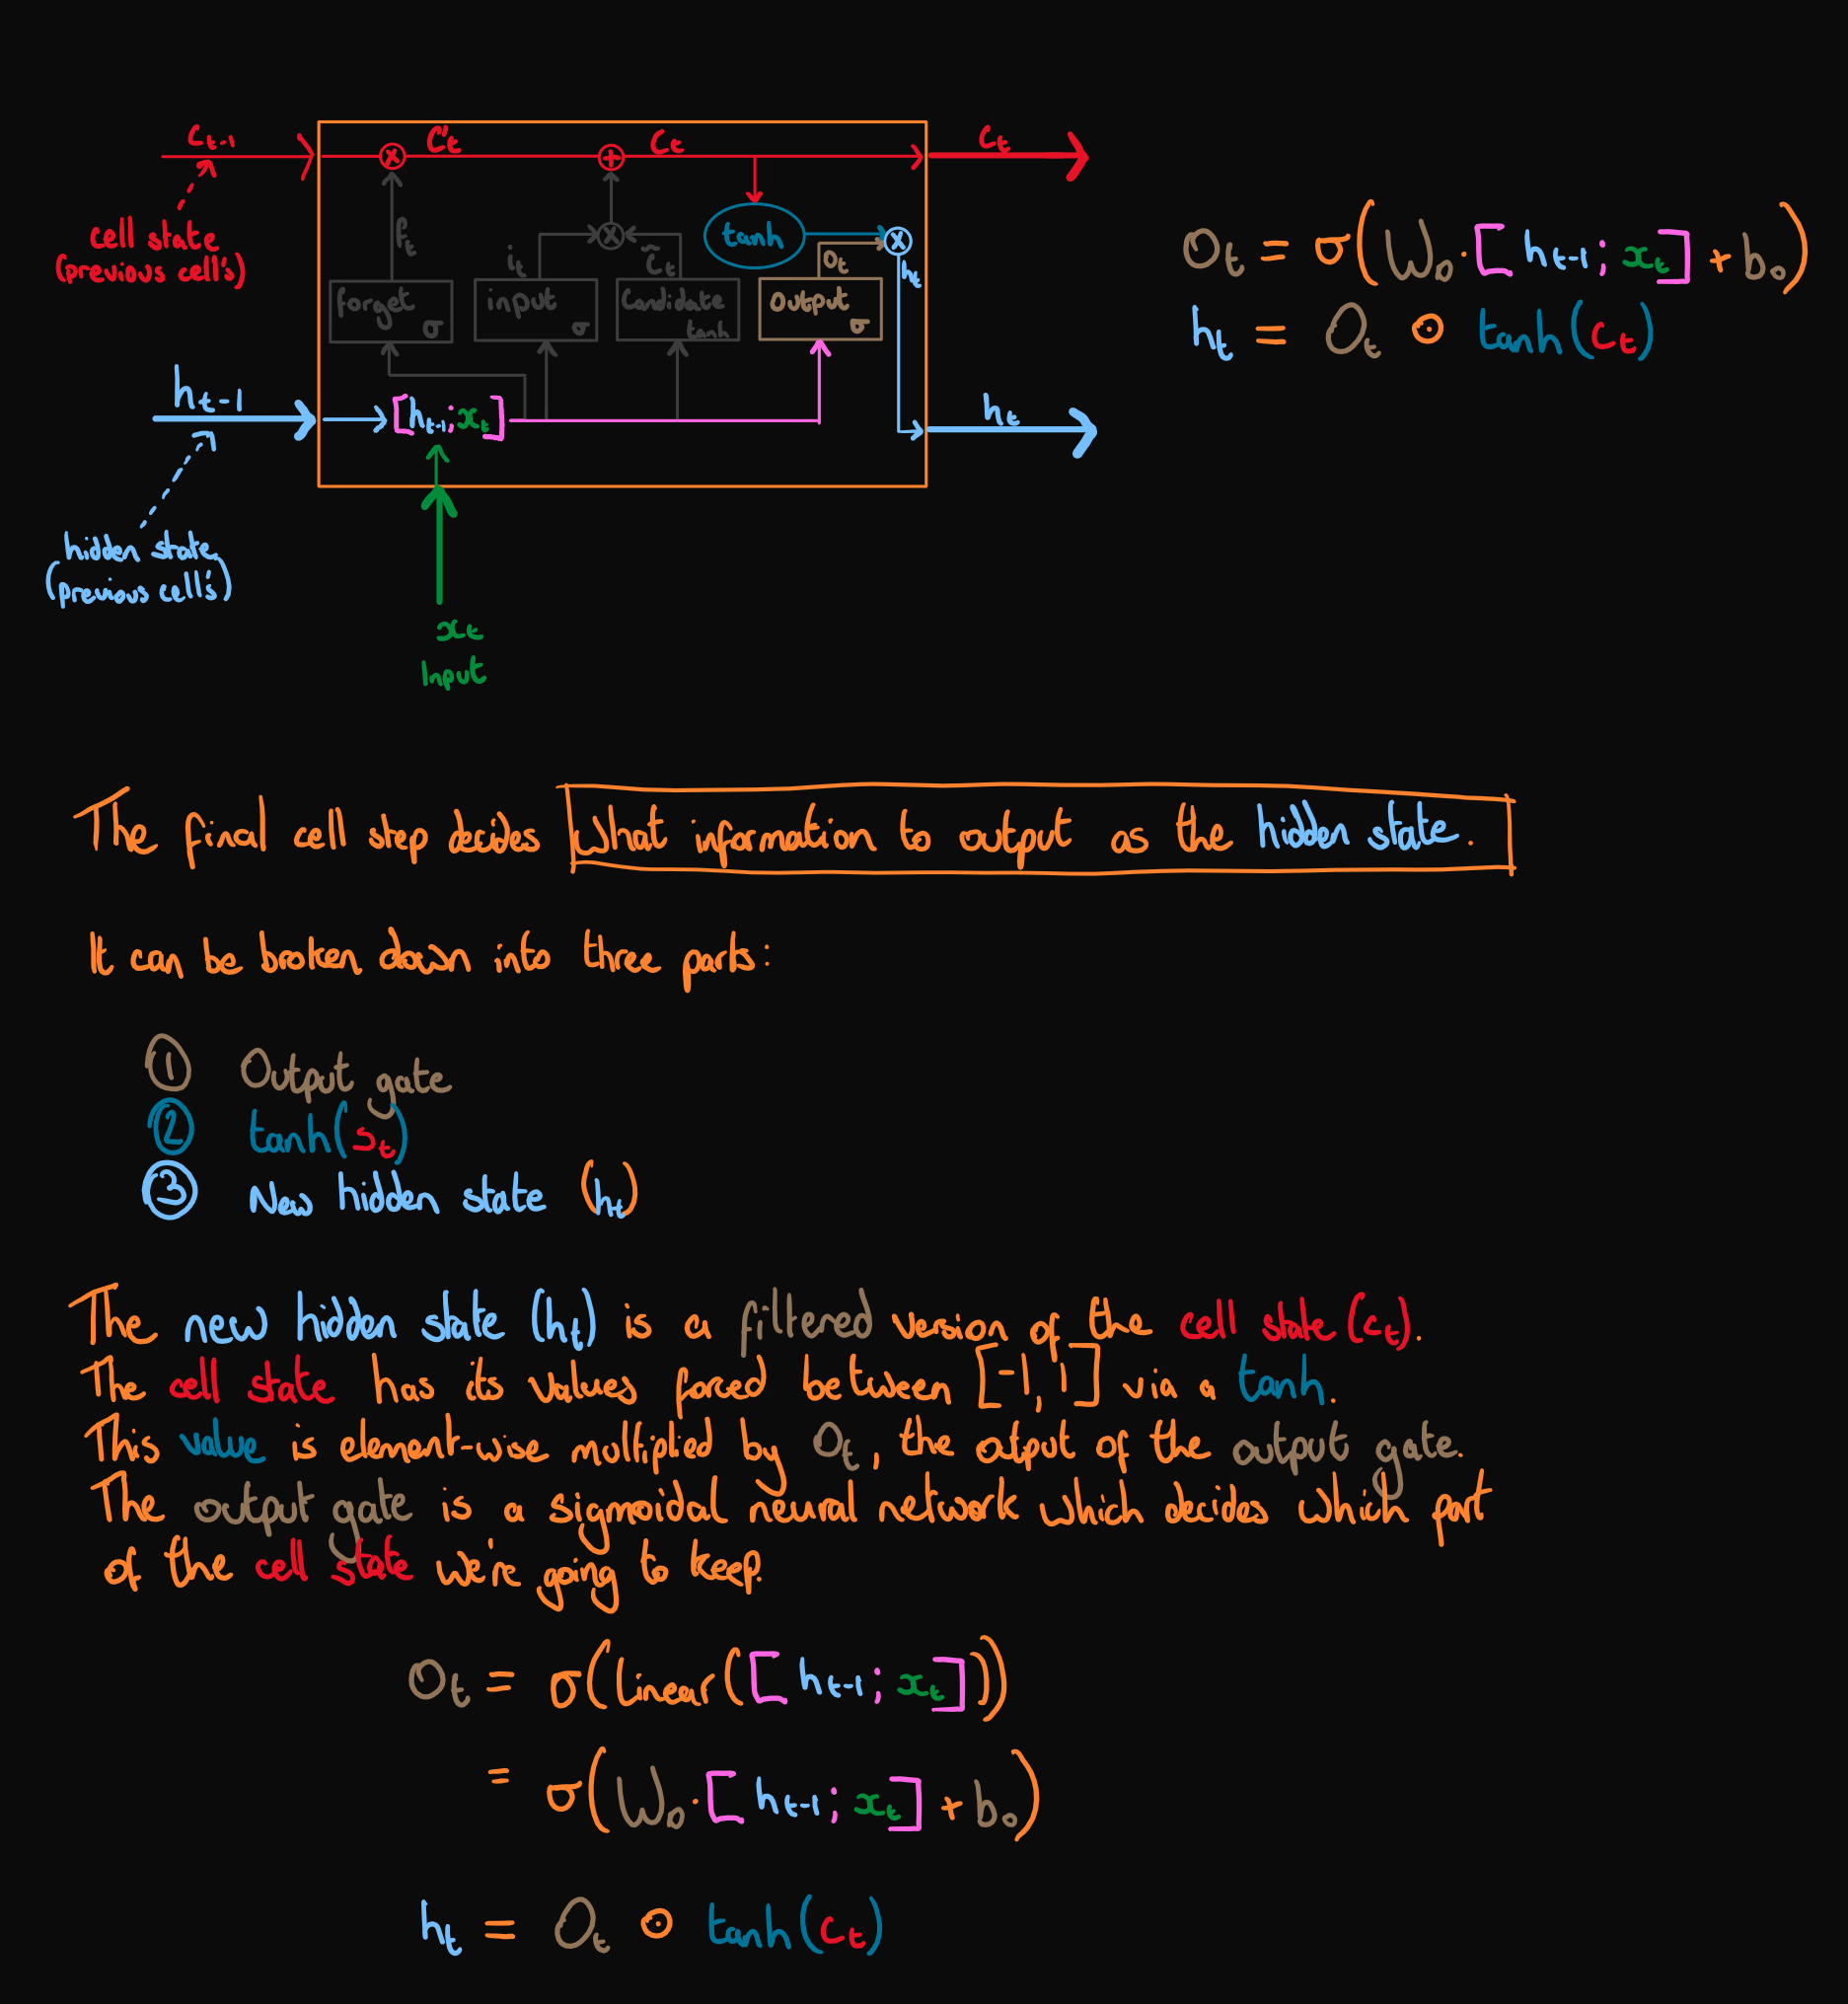 C_{t-1}
C'_t
C_t
C_t
cell state
(previous cell's)
f_t
i_t
C̃_t
tanh
O_t
h_t
forget σ
input σ
Candidate tanh
Output σ
h_{t-1}
[h_{t-1};x_t]
h_t
hidden state
(previous cell's)
x_t
Input
O_t = σ(W_o·[h_{t-1};x_t]+b_o)
h_t = O_t ⊙ tanh(C_t)
The final cell step decides What information to output as the hidden state.
It can be broken down into three parts:
① Output gate
② tanh(s_t)
③ New hidden state (h_t)
The new hidden state (h_t) is a filtered version of the cell state (c_t).
The cell state has its values forced between [-1,1] via a tanh.
This value is element-wise multiplied by O_t, the otput of the output gate.
The output gate is a sigmoidal neural network which decides which part
of the cell state we're going to keep.
O_t = σ(Linear([h_{t-1};x_t]))
= σ(W_o·[h_{t-1};x_t]+b_o)
h_t = O_t ⊙ tanh(C_t)